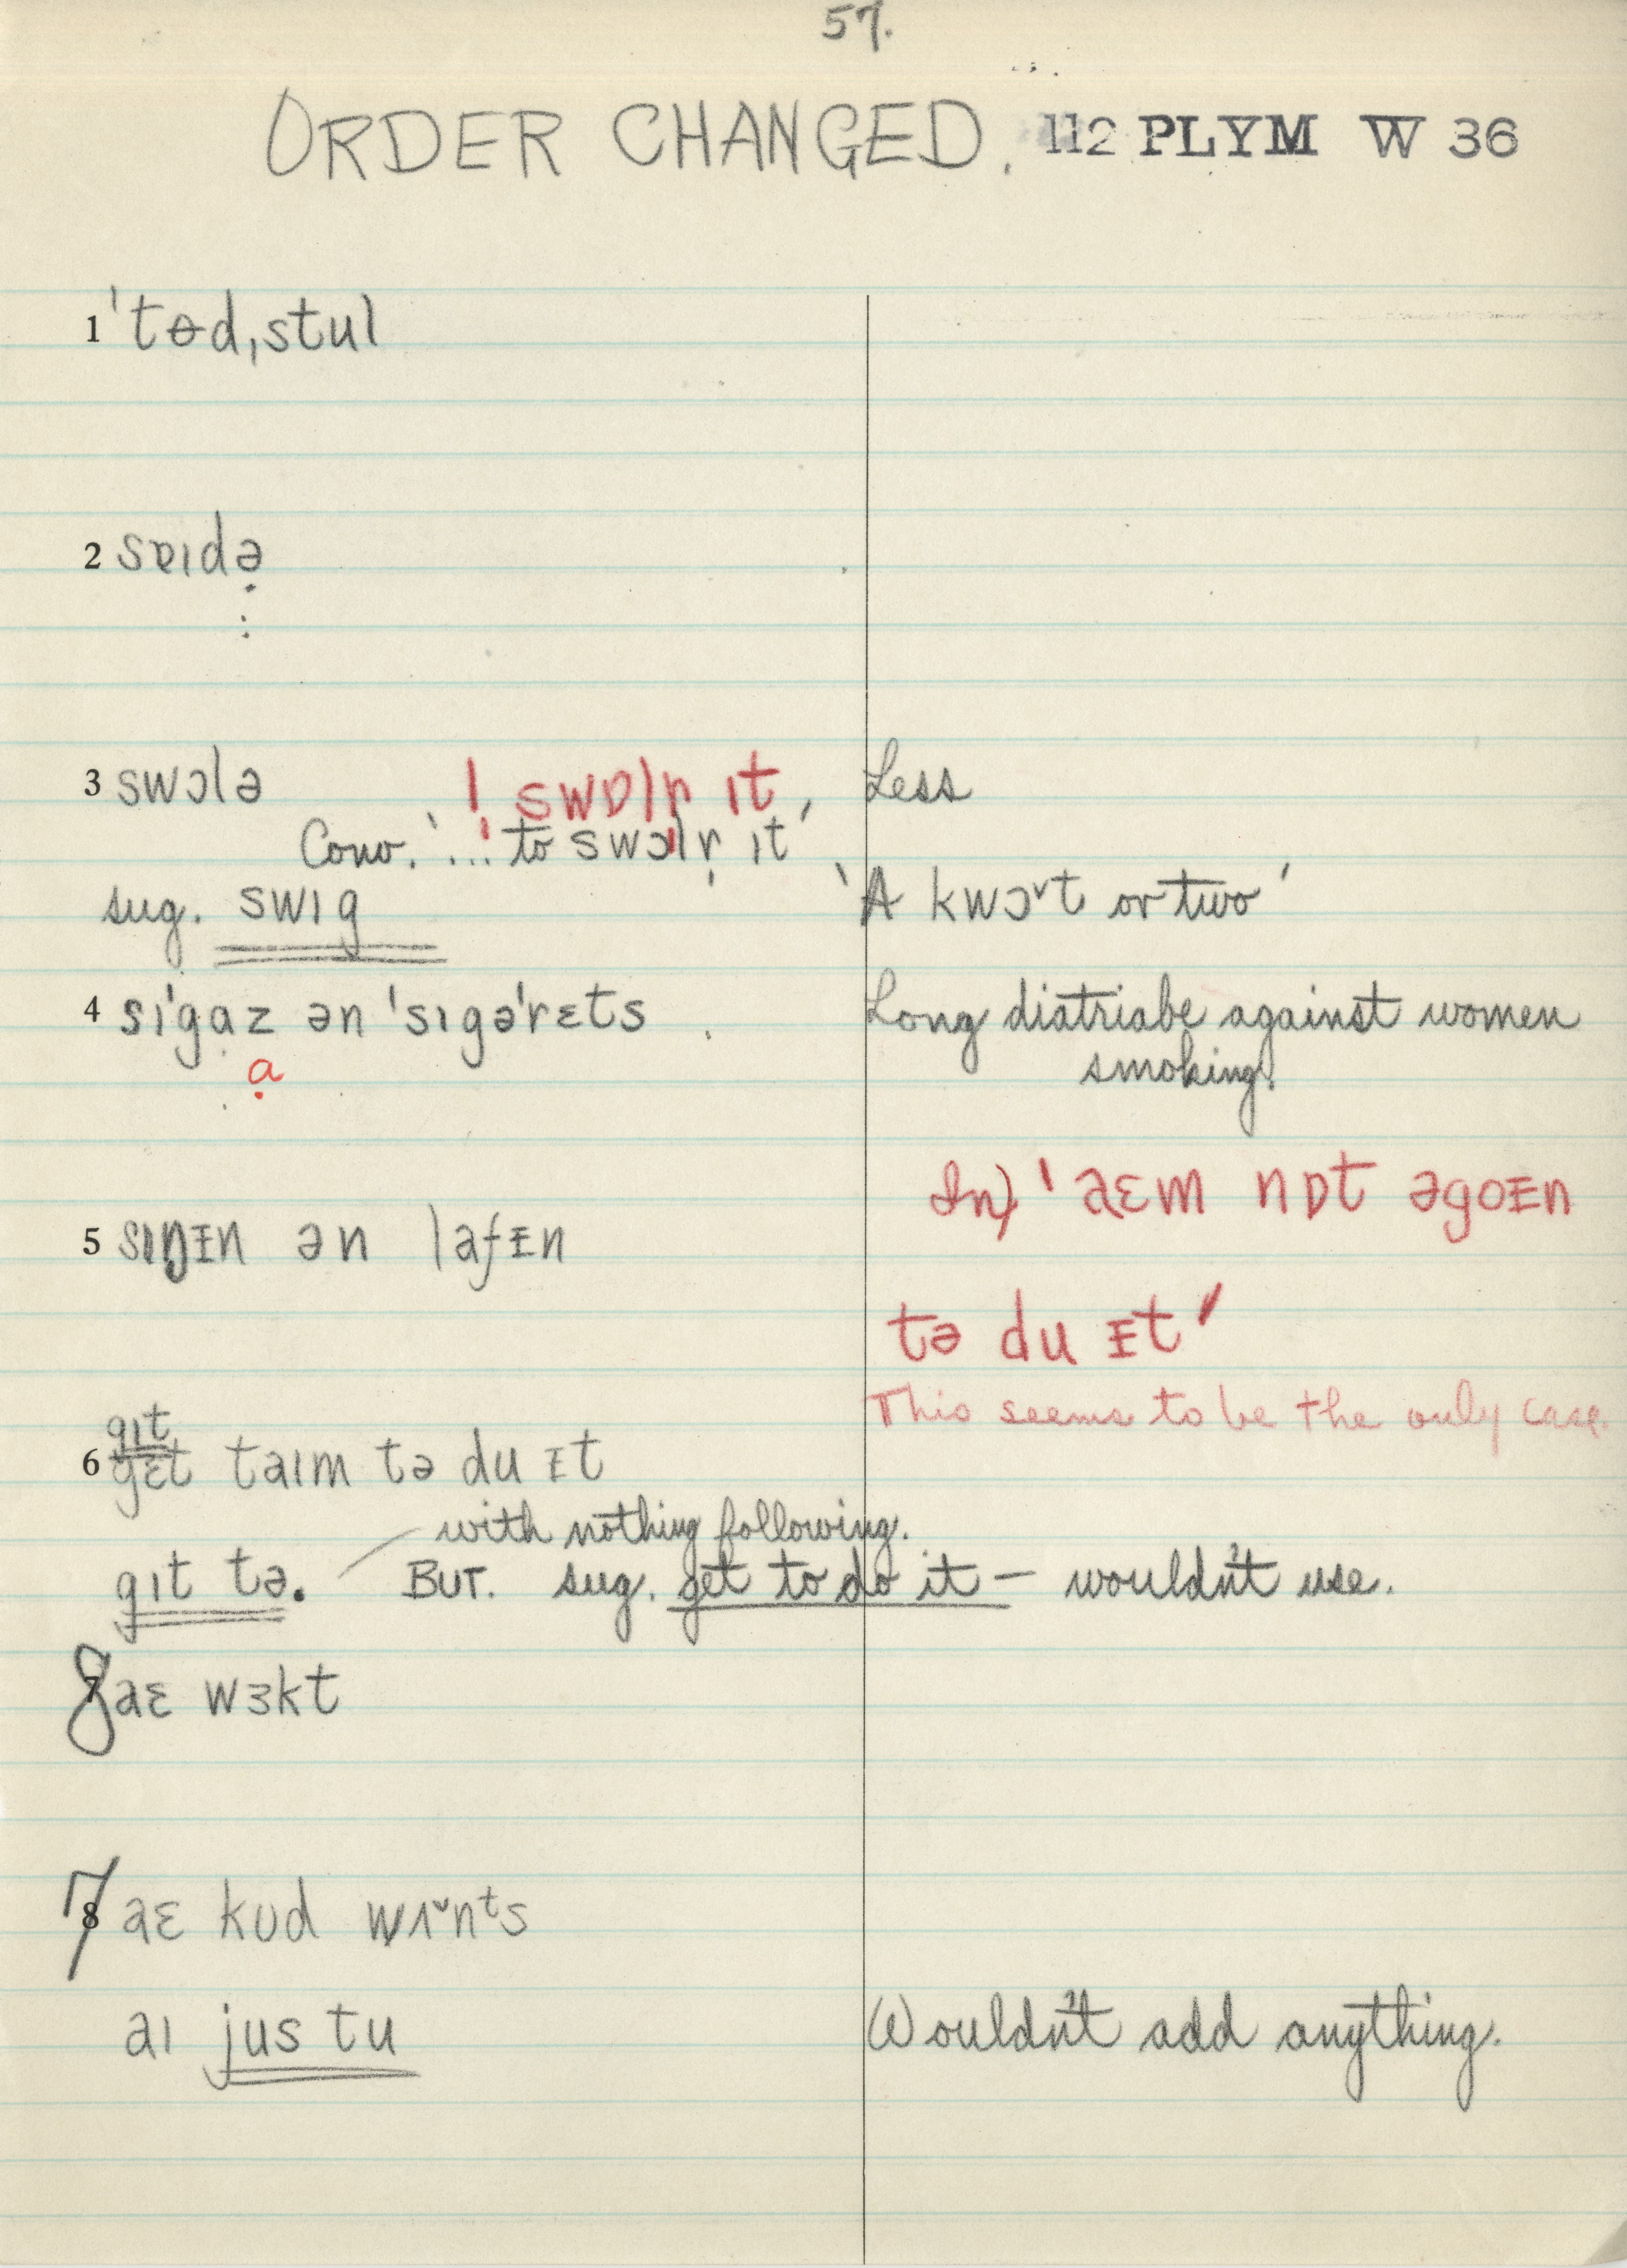 57.
ORDER CHANGED. 112 PLYM W 36
1 ˈtɵdˌstul
2 sɐɪdə
3 swɔlə ! swɒlr ɪt Less
Conv. '... to swɔlr ɪt'
sug. swɪg 'A kwɔ˅t or two'
4 sɪˈgaz ən ˈsɪgəˈrɛts Long diatriabe against women
a smoking.
In) 'aɛm nɒt əgoᵻn
5 sɪŋᵻn ən lafᵻn
tə du ᵻt'
This seems to be the only case.
gɪt
6 gɛt taɪm tə du ᵻt
with nothing following.
gɪt tə. BUT. sug. get to do it – wouldn't use.
8 aɛ wɜkt
7 aɛ kʊd wʌ˅nᵗs
aɪ jus tu Wouldn't add anything.